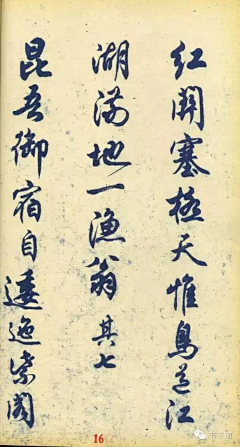 红関塞極天惟鳥道江
湖满地一漁翁其七
昆吾御宿自逶迤紫阁
16